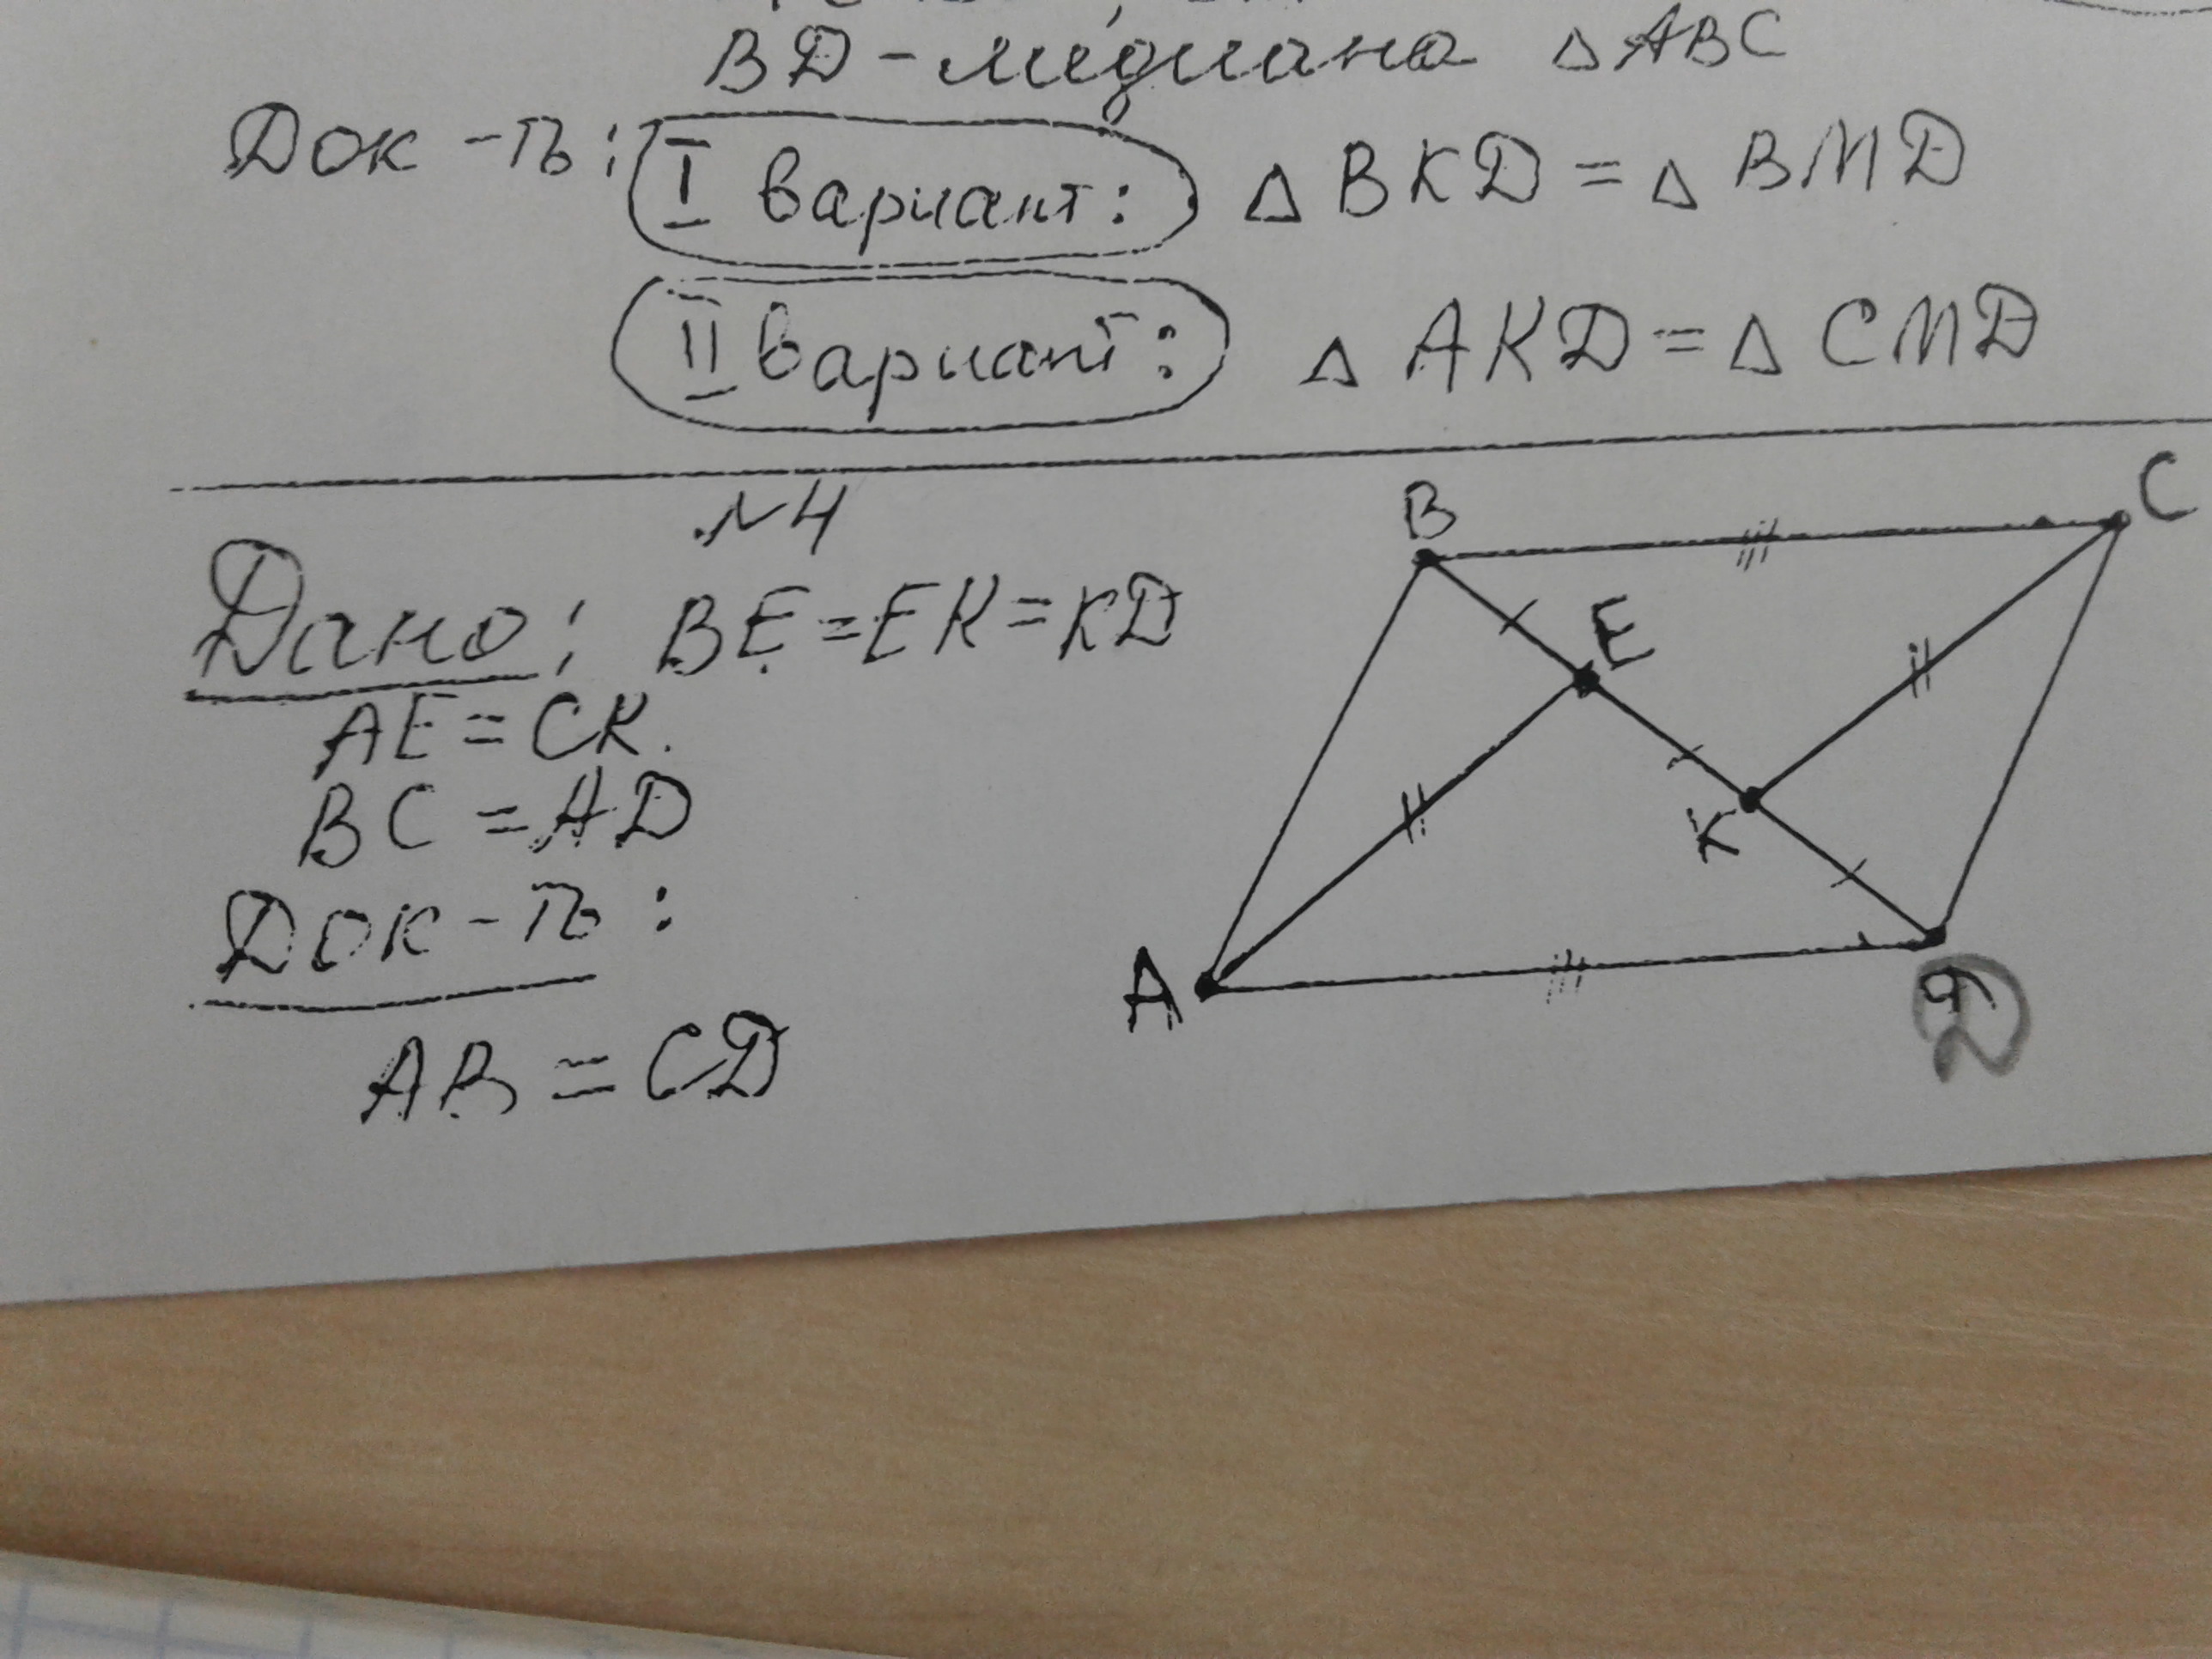 BD - медиана △ ABC
Док-ть: I вариант: △ BKD = △ BMD
II вариант: △ AKD = △ CMD
№4
Дано: BE = EK = KD
AE = CK.
BC = AD
Док-ть:
AB = CD
B
C
E
K
A
D